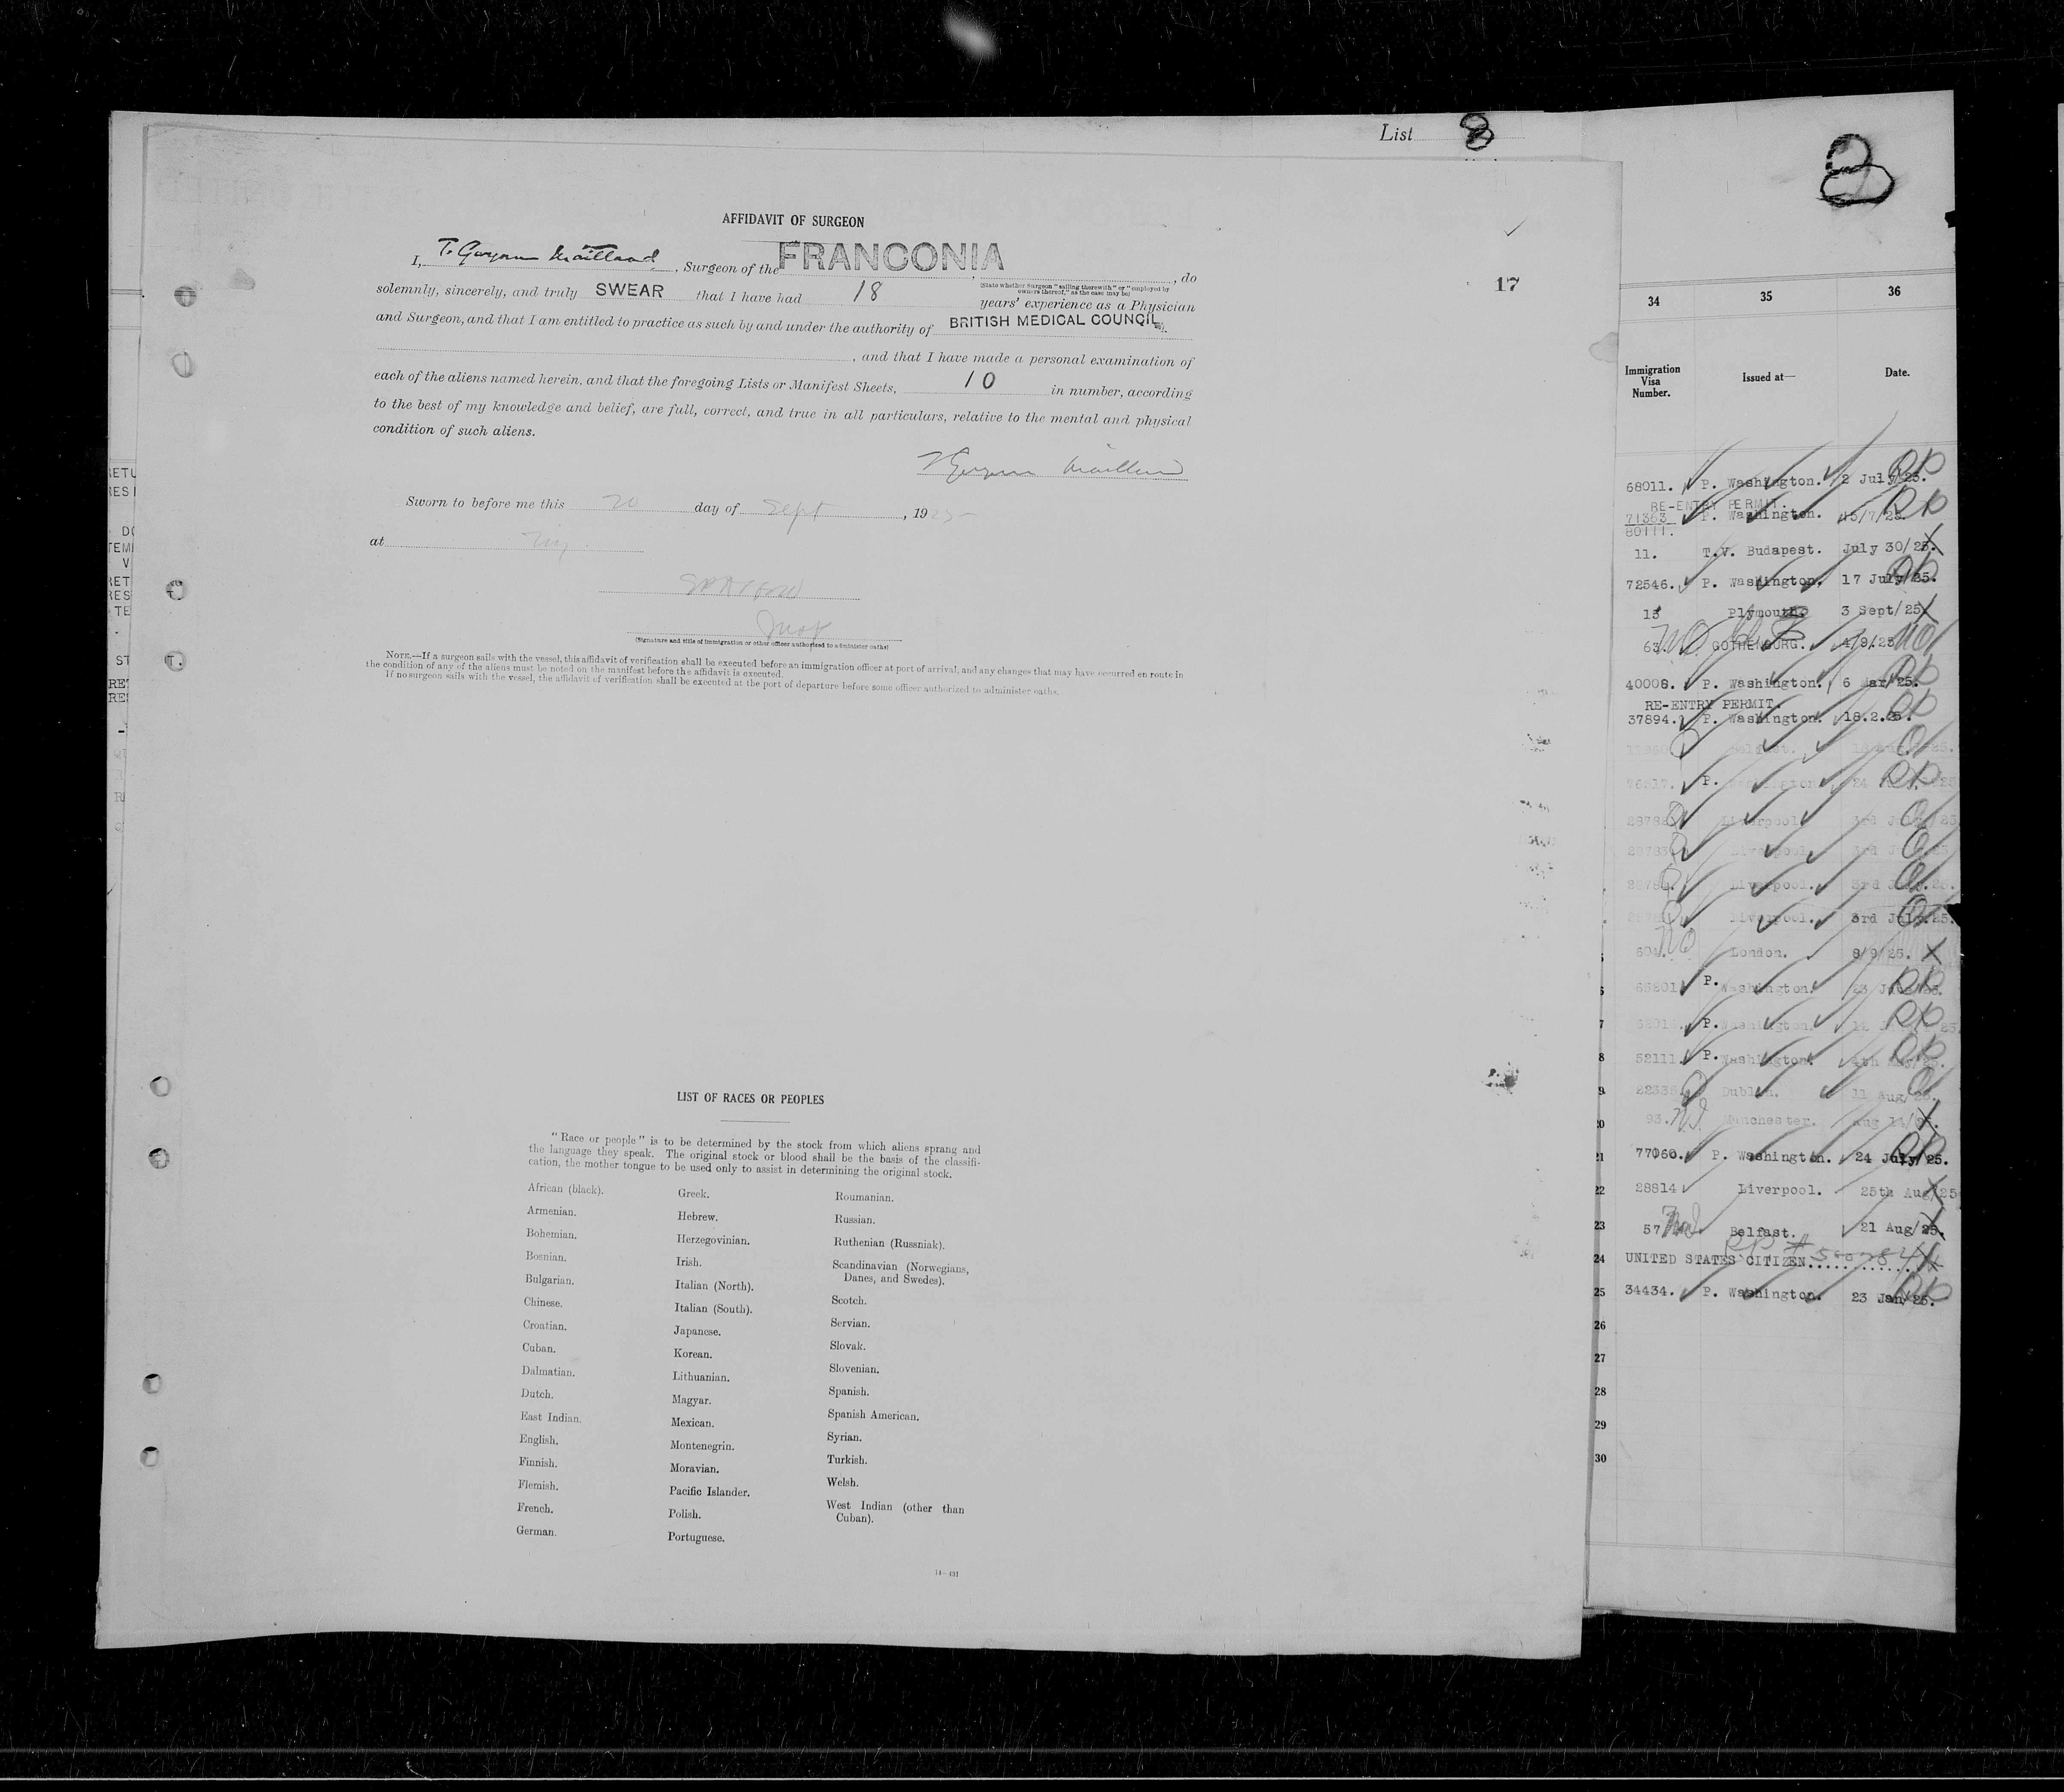 List 8
8
AFFIDAVIT OF SURGEON
I, T. Gwynne Maitland, Surgeon of the FRANCONIA, do
(State whether Surgeon "sailing therewith" or "employed by owners thereof," as the case may be)
17
solemnly, sincerely, and truly SWEAR that I have had 18 years' experience as a Physician
and Surgeon, and that I am entitled to practice as such by and under the authority of BRITISH MEDICAL COUNCIL
, and that I have made a personal examination of
each of the aliens named herein, and that the foregoing Lists or Manifest Sheets, 10 in number, according
to the best of my knowledge and belief, are full, correct, and true in all particulars, relative to the mental and physical
condition of such aliens.
T Gwynne Maitland
Sworn to before me this 20 day of Sept, 1925
at NY
Insp
(Signature and title of immigration or other officer authorized to administer oaths)
NOTE.—If a surgeon sails with the vessel, this affidavit of verification shall be executed before an immigration officer at port of arrival, and any changes that may have occurred en route in
the condition of any of the aliens must be noted on the manifest before the affidavit is executed.
If no surgeon sails with the vessel, the affidavit of verification shall be executed at the port of departure before some officer authorized to administer oaths.
LIST OF RACES OR PEOPLES
"Race or people" is to be determined by the stock from which aliens sprang and
the language they speak. The original stock or blood shall be the basis of the classifi-
cation, the mother tongue to be used only to assist in determining the original stock.
African (black).
Armenian.
Bohemian.
Bosnian.
Bulgarian.
Chinese.
Croatian.
Cuban.
Dalmatian.
Dutch.
East Indian.
English.
Finnish.
Flemish.
French.
German.
Greek.
Hebrew.
Herzegovinian.
Irish.
Italian (North).
Italian (South).
Japanese.
Korean.
Lithuanian.
Magyar.
Mexican.
Montenegrin.
Moravian.
Pacific Islander.
Polish.
Portuguese.
Roumanian.
Russian.
Ruthenian (Russniak).
Scandinavian (Norwegians,
Danes, and Swedes).
Scotch.
Servian.
Slovak.
Slovenian.
Spanish.
Spanish American.
Syrian.
Turkish.
Welsh.
West Indian (other than
Cuban).
34 35 36
Immigration Visa Number. Issued at— Date.
68011. P. Washington. 2 July/25.
RE-ENTRY PERMIT.
71363 P. Washington. 15/7/25.
80111.
11. T.V. Budapest. July 30/25.
72546. P. Washington. 17 July/25.
13 Plymouth. 3 Sept/25
63. NO GOTHENBURG. 4/9/25 NO
40008. P. Washington. 6 Mar/25.
RE-ENTRY PERMIT.
37894. P. Washington. 18.2.25.
Belfast.
P. Washington. 24
Liverpool. 3rd July/25
Liverpool. 3rd July/25
Liverpool. 3rd July/25.
Liverpool. 3rd July/25.
604. NO London. 8/9/25.
6 65201 P. Washington. 23
7 P. Washington.
8 52111 P. Washington. 4th May/25.
9 Dublin. 11 Aug/25.
20 93. Manchester. Aug 14/25.
21 77060. P. Washington. 24 July/25.
22 28814 Liverpool. 25th Aug/25
23 57 Belfast. 21 Aug/25.
24 UNITED STATES CITIZEN
25 34434. P. Washington. 23 Jan/25.
26
27
28
29
30